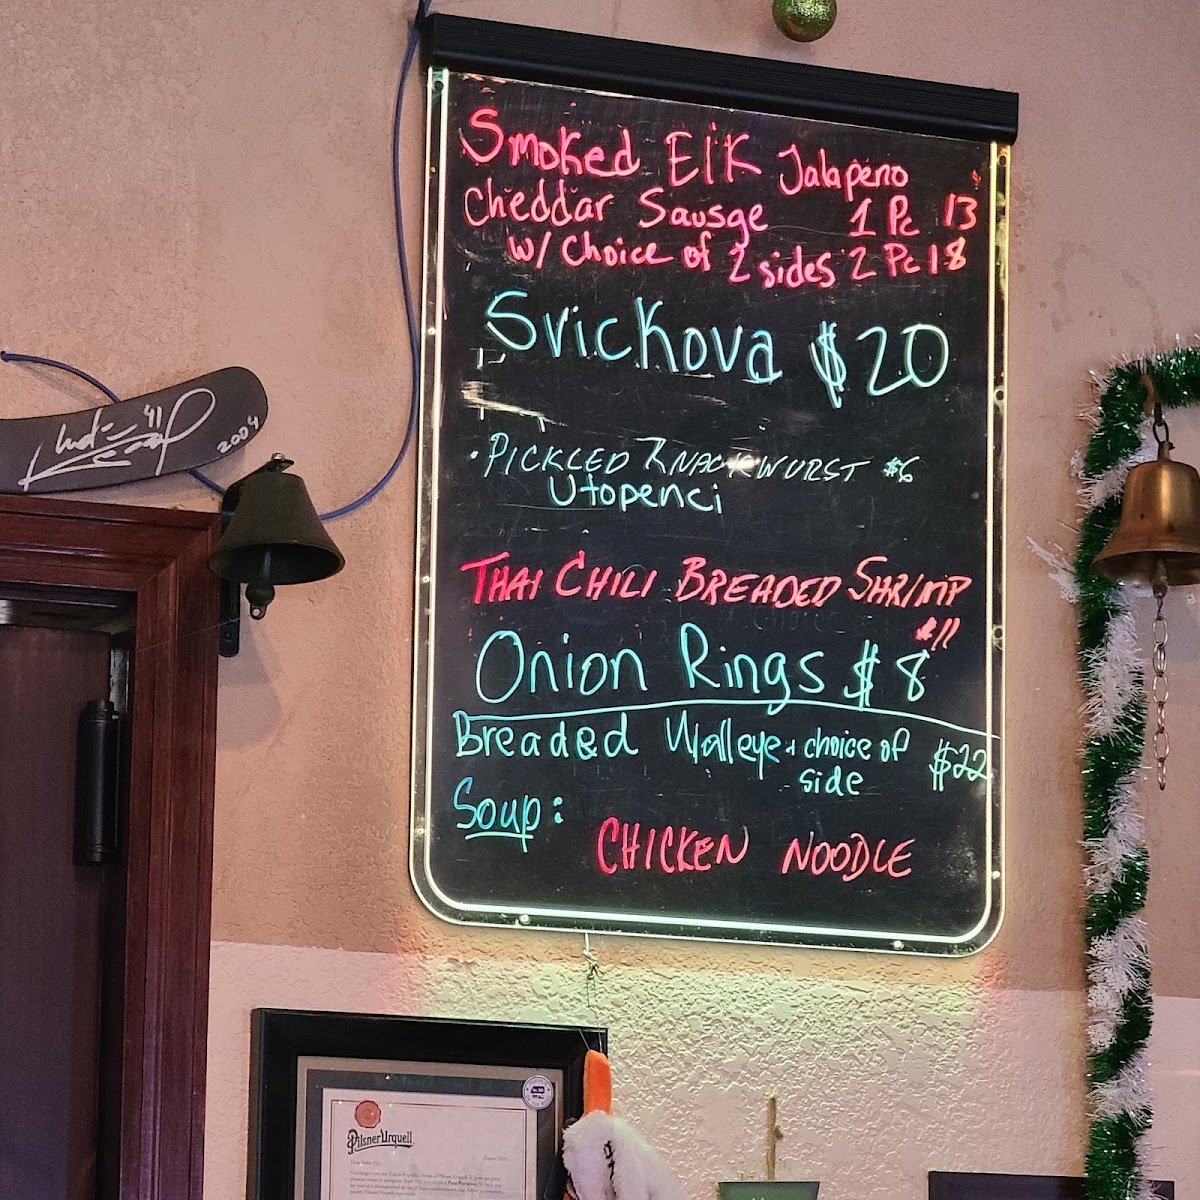 Smoked Elk Jalapeno
Cheddar Sausge 1 Pc 13
w/ Choice of 2 sides 2 Pc 18
Svickova $20
· PICKLED KNACKWURST $6
Utopenci
THAI CHILI BREADED SHRIMP
$11
Onion Rings $8
Breaded Walleye + choice of $22
side
Soup:
CHICKEN NOODLE
41
2004
Pilsner Urquell